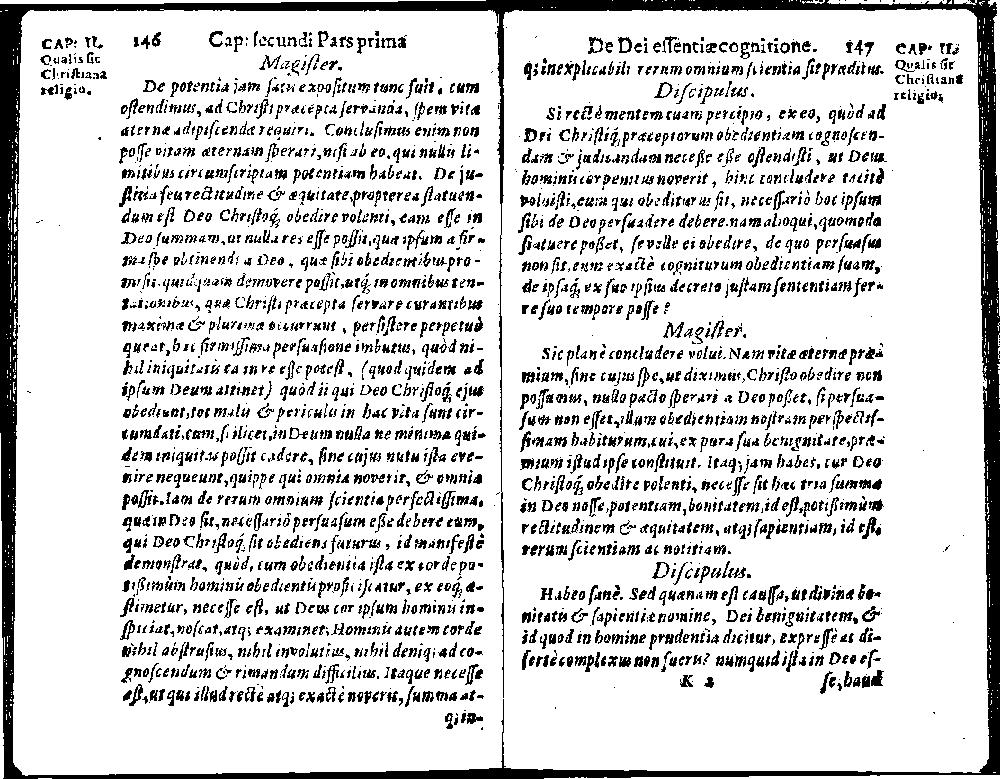 CAP: II.
Qualis sit
Christiana
religio.
146 Cap: secundi Pars prima
Magister.
De potentia jam satis expositum tunc fuit, cum
ostendimus, ad Christi præcepta servanda, spem vitæ
æternæ adipiscendæ requiri. Conclusimus enim non
posse vitam æternam sperari, nisi ab eo, qui nullis li-
mitibus circumscriptam potentiam habeat. De ju-
stitia seu rectitudine & æquitate, propterea statuen-
dum est Deo Christoq́; obedire volenti, eam esse in
Deo summam, ut nulla res esse possit, quæ ipsum a fir-
ma spe obtinendi a Deo, quæ sibi obedientibus pro-
misit, quidquam demovere possit, utq́; in omnibus ten-
tationibus, quæ Christi præcepta servare curantibus
maximæ & plurimæ occurrunt, persistere perpetuò
queat, hac firmissima persuasione imbutus, quòd ni-
hil iniquitatis ea in re esse potest, (quod quidem ad
ipsum Deum attinet) quòd ii qui Deo Christoq́; ejus
obediunt, tot malis & periculis in hac vita sunt cir-
cumdati, cum, scilicet, in Deum nulla ne minima qui-
dem iniquitas possit cadere, sine cujus nutu ista eve-
nire nequeunt, quippe qui omnia noverit, & omnia
possit. Iam de rerum omnium scientia perfectissima,
quæ in Deo sit, necessariò persuasum esse debere eum,
qui Deo Christoq́; sit obediens futurus, id manifestè
demonstrat, quòd, cum obedientia ista ex corde po-
tissimùm hominũ obedientiũ proficiscatur, ex eoq́; æ-
stimetur, necesse est, ut Deus cor ipsum hominũ in-
spiciat, noscat, atq; examinet: Hominũ autem corde
nihil abstrusius, nihil involutius, nihil deniq; ad co-
gnoscendum & rimandum difficilius. Itaque necesse
est, ut qui illud rectè atq; exactè noverit, summa at-
q; in-
De Dei essentiæ cognitione. 147
CAP: II.
Qualis sit
Christiana
religio.
q; inexplicabili rerum omnium scientia sit præditus.
Discipulus.
Si rectè mentem tuam percipio, ex eo, quòd ad
Dei Christiq́; præceptorum obedientiam cognoscen-
dam & judicandam necesse esse ostendisti, ut Deus
hominũ cor penitus noverit, hinc concludere tacitè
voluisti, eum qui obediturus sit, necessariò hoc ipsum
sibi de Deo persuadere debere. nam alioqui, quomodo
statuere posset, se velle ei obedire, de quo persuasus
non sit, eum exactè cogniturum obedientiam suam,
de ipsaq́; ex suo ipsius decreto justam sententiam fer-
re suo tempore posse?
Magister.
Sic planè concludere volui. Nam vitæ æternæ præ-
mium, sine cujus spe, ut diximus, Christo obedire non
possumus, nullo pacto sperari a Deo posset, si persua-
sum non esset, illum obedientiam nostram perspectis-
simam habiturum, cui, ex pura sua benignitate, præ-
mium istud ipse constituit. Itaq; jam habes, cur Deo
Christoq́; obedire volenti, necesse sit hæc tria summa
in Deo nosse, potentiam, bonitatem, id est, potissimùm
rectitudinem & æquitatem, atq; sapientiam, id est,
rerum scientiam ac notitiam.
Discipulus.
Habeo sanè. Sed quænam est caussa, ut divinæ bo-
nitatis & sapientiæ nomine, Dei benignitatem, &
id quod in homine prudentia dicitur, expressè ac di-
sertè complexus non fueris? numquid ista in Deo es-
K 2 se, haud